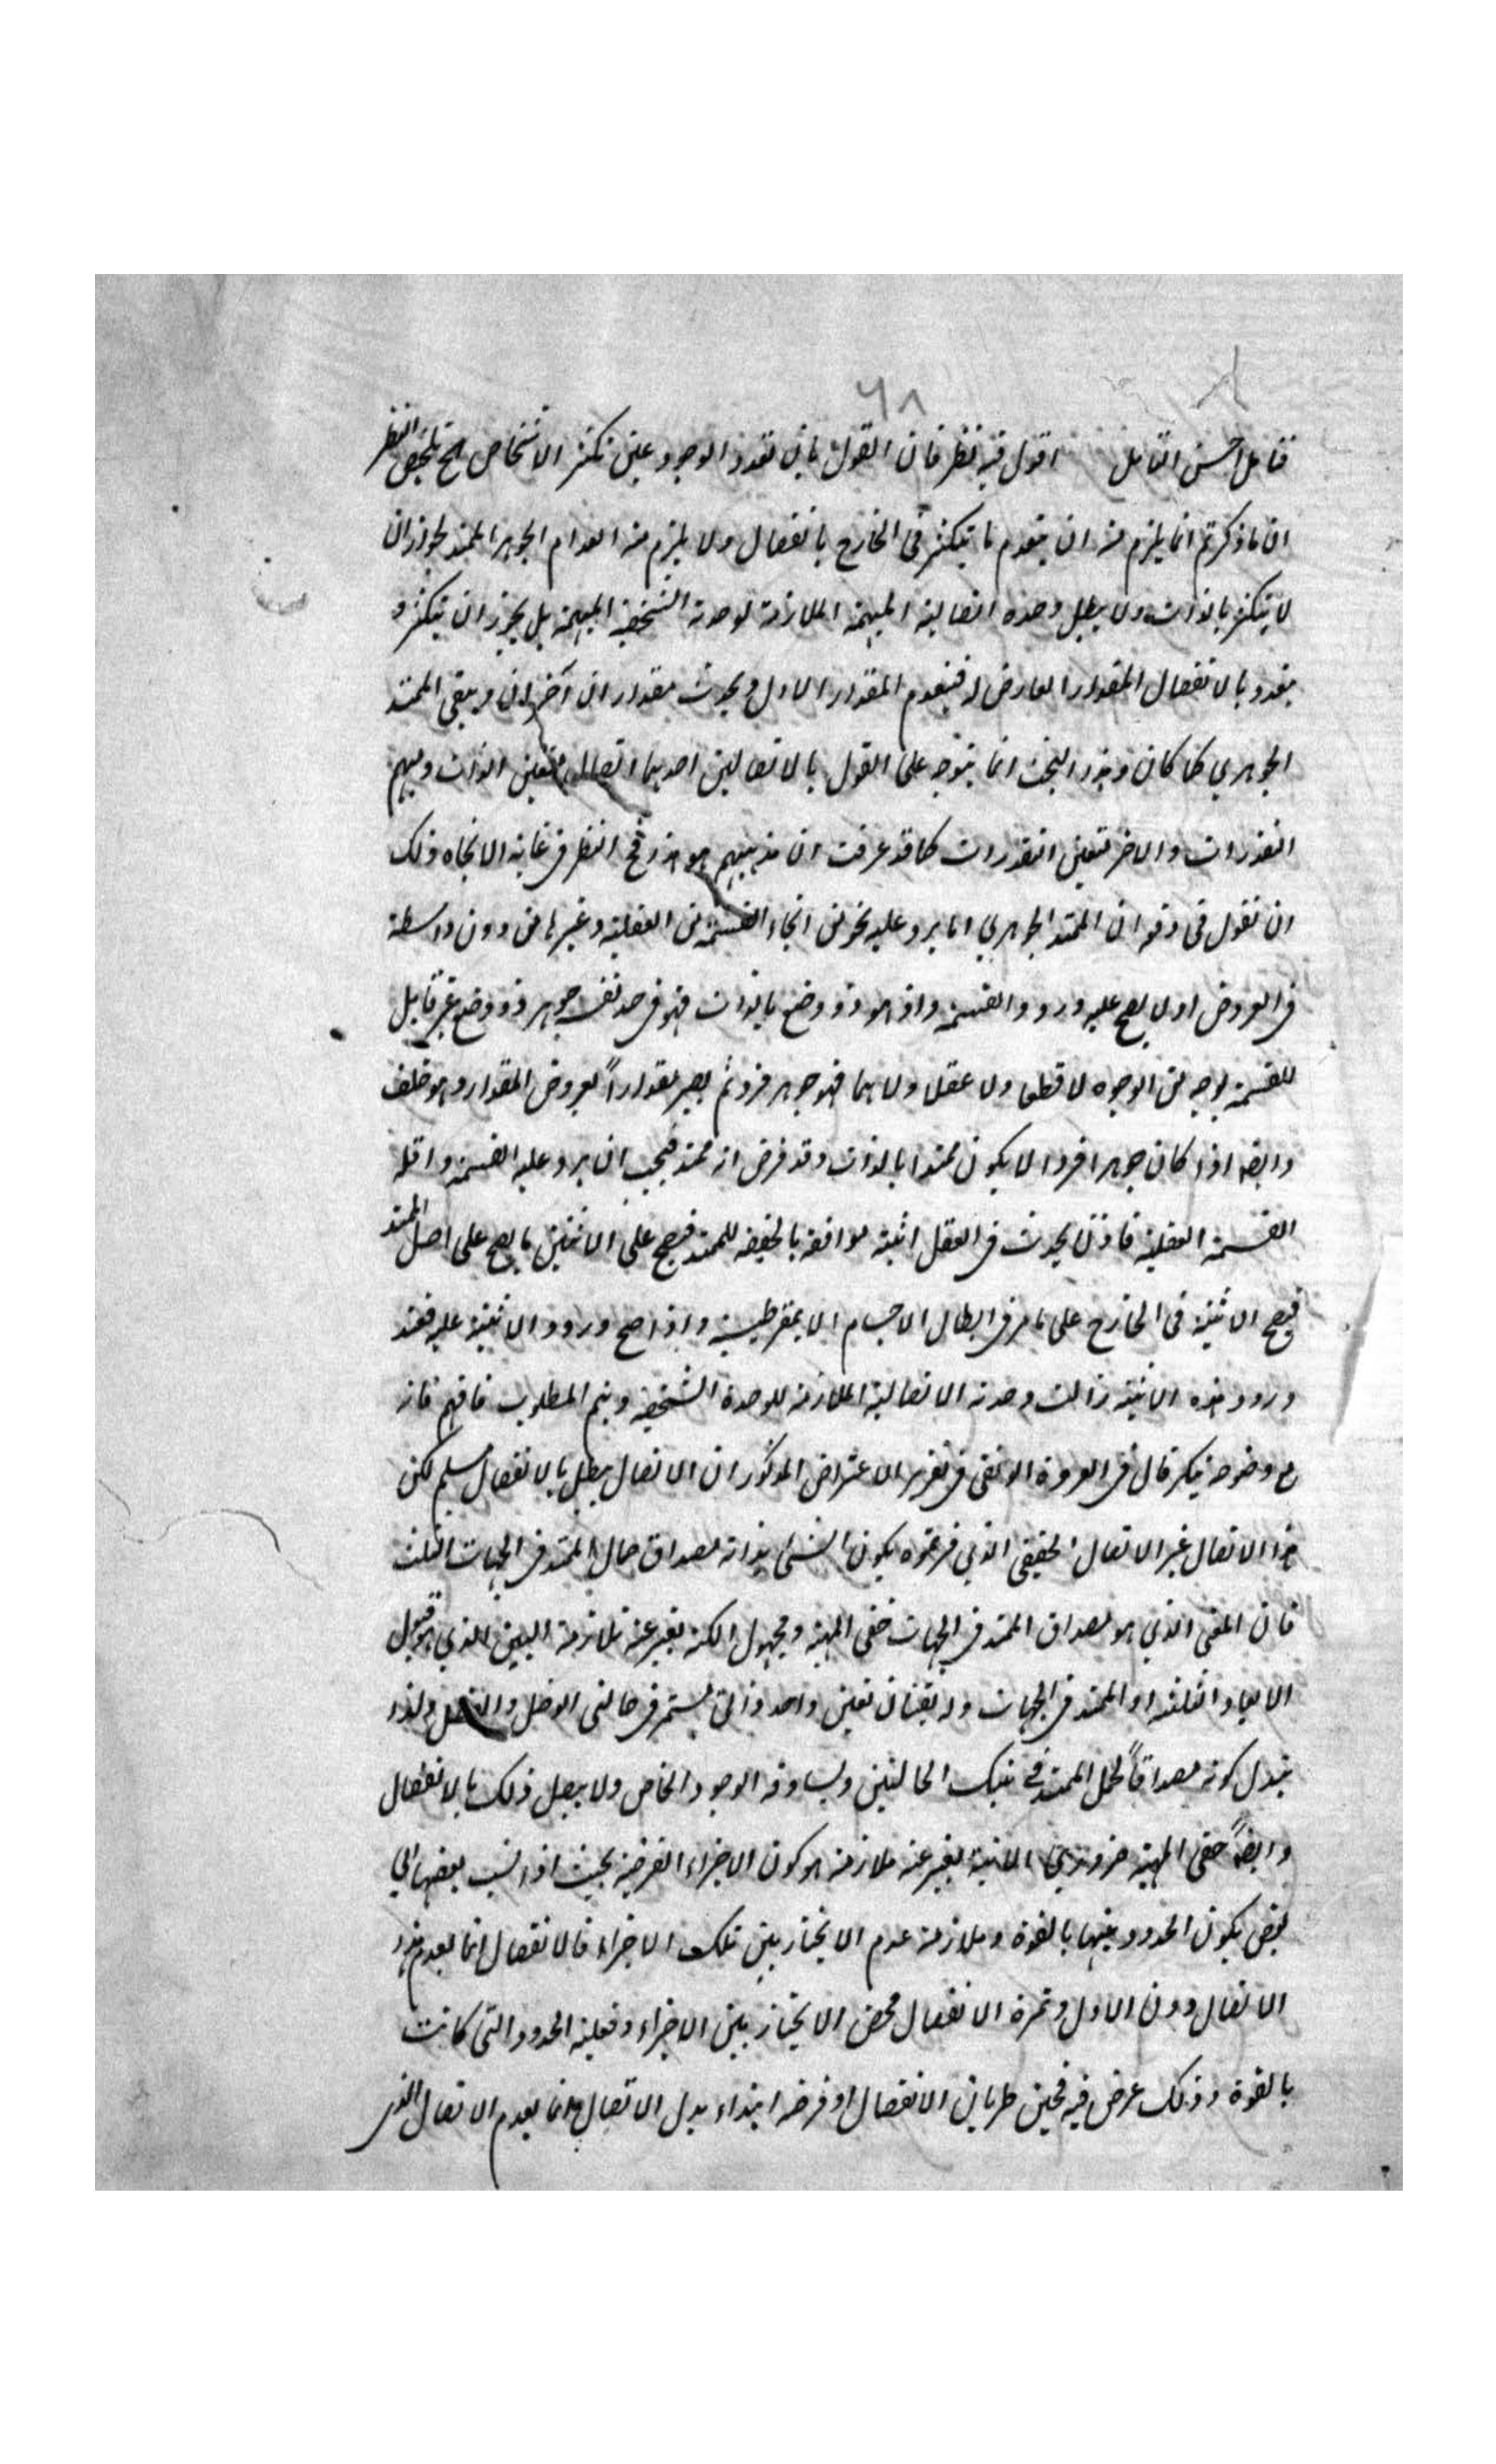 ٦٨
فتامل احسن التامل اقول فيه نظر فان القول بان تعدد الوجود عين تكثر الاشخاص تلخيص النظر
ان ما ذكرتم انما يلزم منه ان ينعدم ما يتكثر فى الخارج بانفصال ولا يلزم منه انعدام الجوهر الممتد لجواز ان
لا يتكثر بالذات ولا يبطل وحدته اتصالية المبهمة الملازمة لوحدته الشخصية المبهمة بل يجوز ان يتكثر و
يتعدد بالانفصال المقدار العارض له فينعدم المقدار الاول ويحدث مقداران آخران ويبقى الممتد
الجوهري كما كان وهذا البحث انما يتوجه على القول بالاتصالين احدهما اتصال متعين الذات ومبهم
التقدرات والاخر متعين التقدرات كما قد عرفت ان مذهبهم هو هذا فح النظر فى غاية الاتجاه ولك
ان تقول فى دفعه ان الممتد الجوهري اما يرد عليه نحو من انحاء القسمة من العقلية وغيرها من دون واسطة
فى العروض او لا يصح عليه ورود القسمة واذ هو ذو وضع بالذات فهو فى حد نفسه جوهر ذو وضع غير قابل
للقسمة بوجه من الوجوه لا قطعا ولا عقلا ولا وهما فهو جوهر فرد ثم يصير مقدارا بعروض المقدار وهو خلف
وايضا اذا كان جوهرا فردا لا يكون ممتدا بالذات وقد فرض انه ممتد فيجب ان يرد عليه القسمة واقله
القسمة العقلية فاذن يحدث فى العقل اثنينية موافقة بالحقيقة للممتد فيصح على الاثنين ما يصح على اصل الممتد
فيصح الاثنينية فى الخارج على ما مر فى ابطال الاجسام الديمقراطيسية واذا صح ورود الاثنينية عليه فعند
ورود هذه الاثنينية زالت وحدته الاتصالية الملازمة للوحدة الشخصية ويتم المطلوب فافهم فانه
مع وضوحه قال فى العروة الوثقى فى تقرير الاعتراض المذكور ان الاتصال يبطل بالانفصال مسلم لكن
هذا الاتصال غير الاتصال الحقيقى الذي فسرتموه بكون الشئ بذاته مصداق حمل الممتد فى الجهات الثلث
فان المعنى الذي هو مصداق الممتد فى الجهات خفى المهية ومجهول الكنه يعبر عنه بملازمه البين الذي هو قبول
الابعاد الثلثة او الممتد فى الجهات وله تعين واحد ذاتى يستمر فى حالتى الوصل والفصل ولا
يتبدل كونه مصداقا لحمل الممتد فى تينك الحالتين ويساوقه الوجود الخاص ولا يبطل ذلك بالانفصال
وايضا خفى المهية ضروري الانية يعبر عنه ملازمه هو كون الاجزاء الفرضية بحيث اذا نسب بعضها الى
بعض يكون الحدود بينها بالقوة وملازمه عدم الانحياز بين تلك الاجزاء فالانفصال انما يعدم هذا
الاتصال دون الاول وثمرة الانفصال محض الانحياز بين الاجزاء وفعلية الحدود التى كانت
بالقوة وذلك عرض فيه فحين طريان الانفصال او فرضه ابتداء بدل الاتصال انما يعدم الاتصال الذى